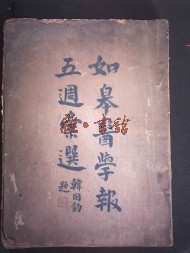 如皋醫學報
五週彙選
韓國鈞
題